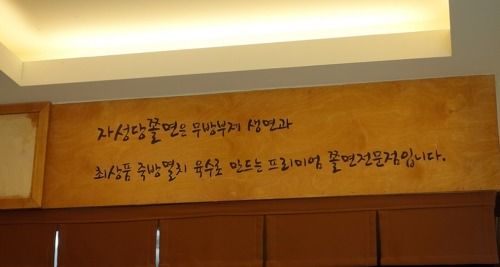 자성당쫄면은 무방부제 생면과
최상품 죽방멸치 육수로 만드는 프리미엄 쫄면전문점입니다.